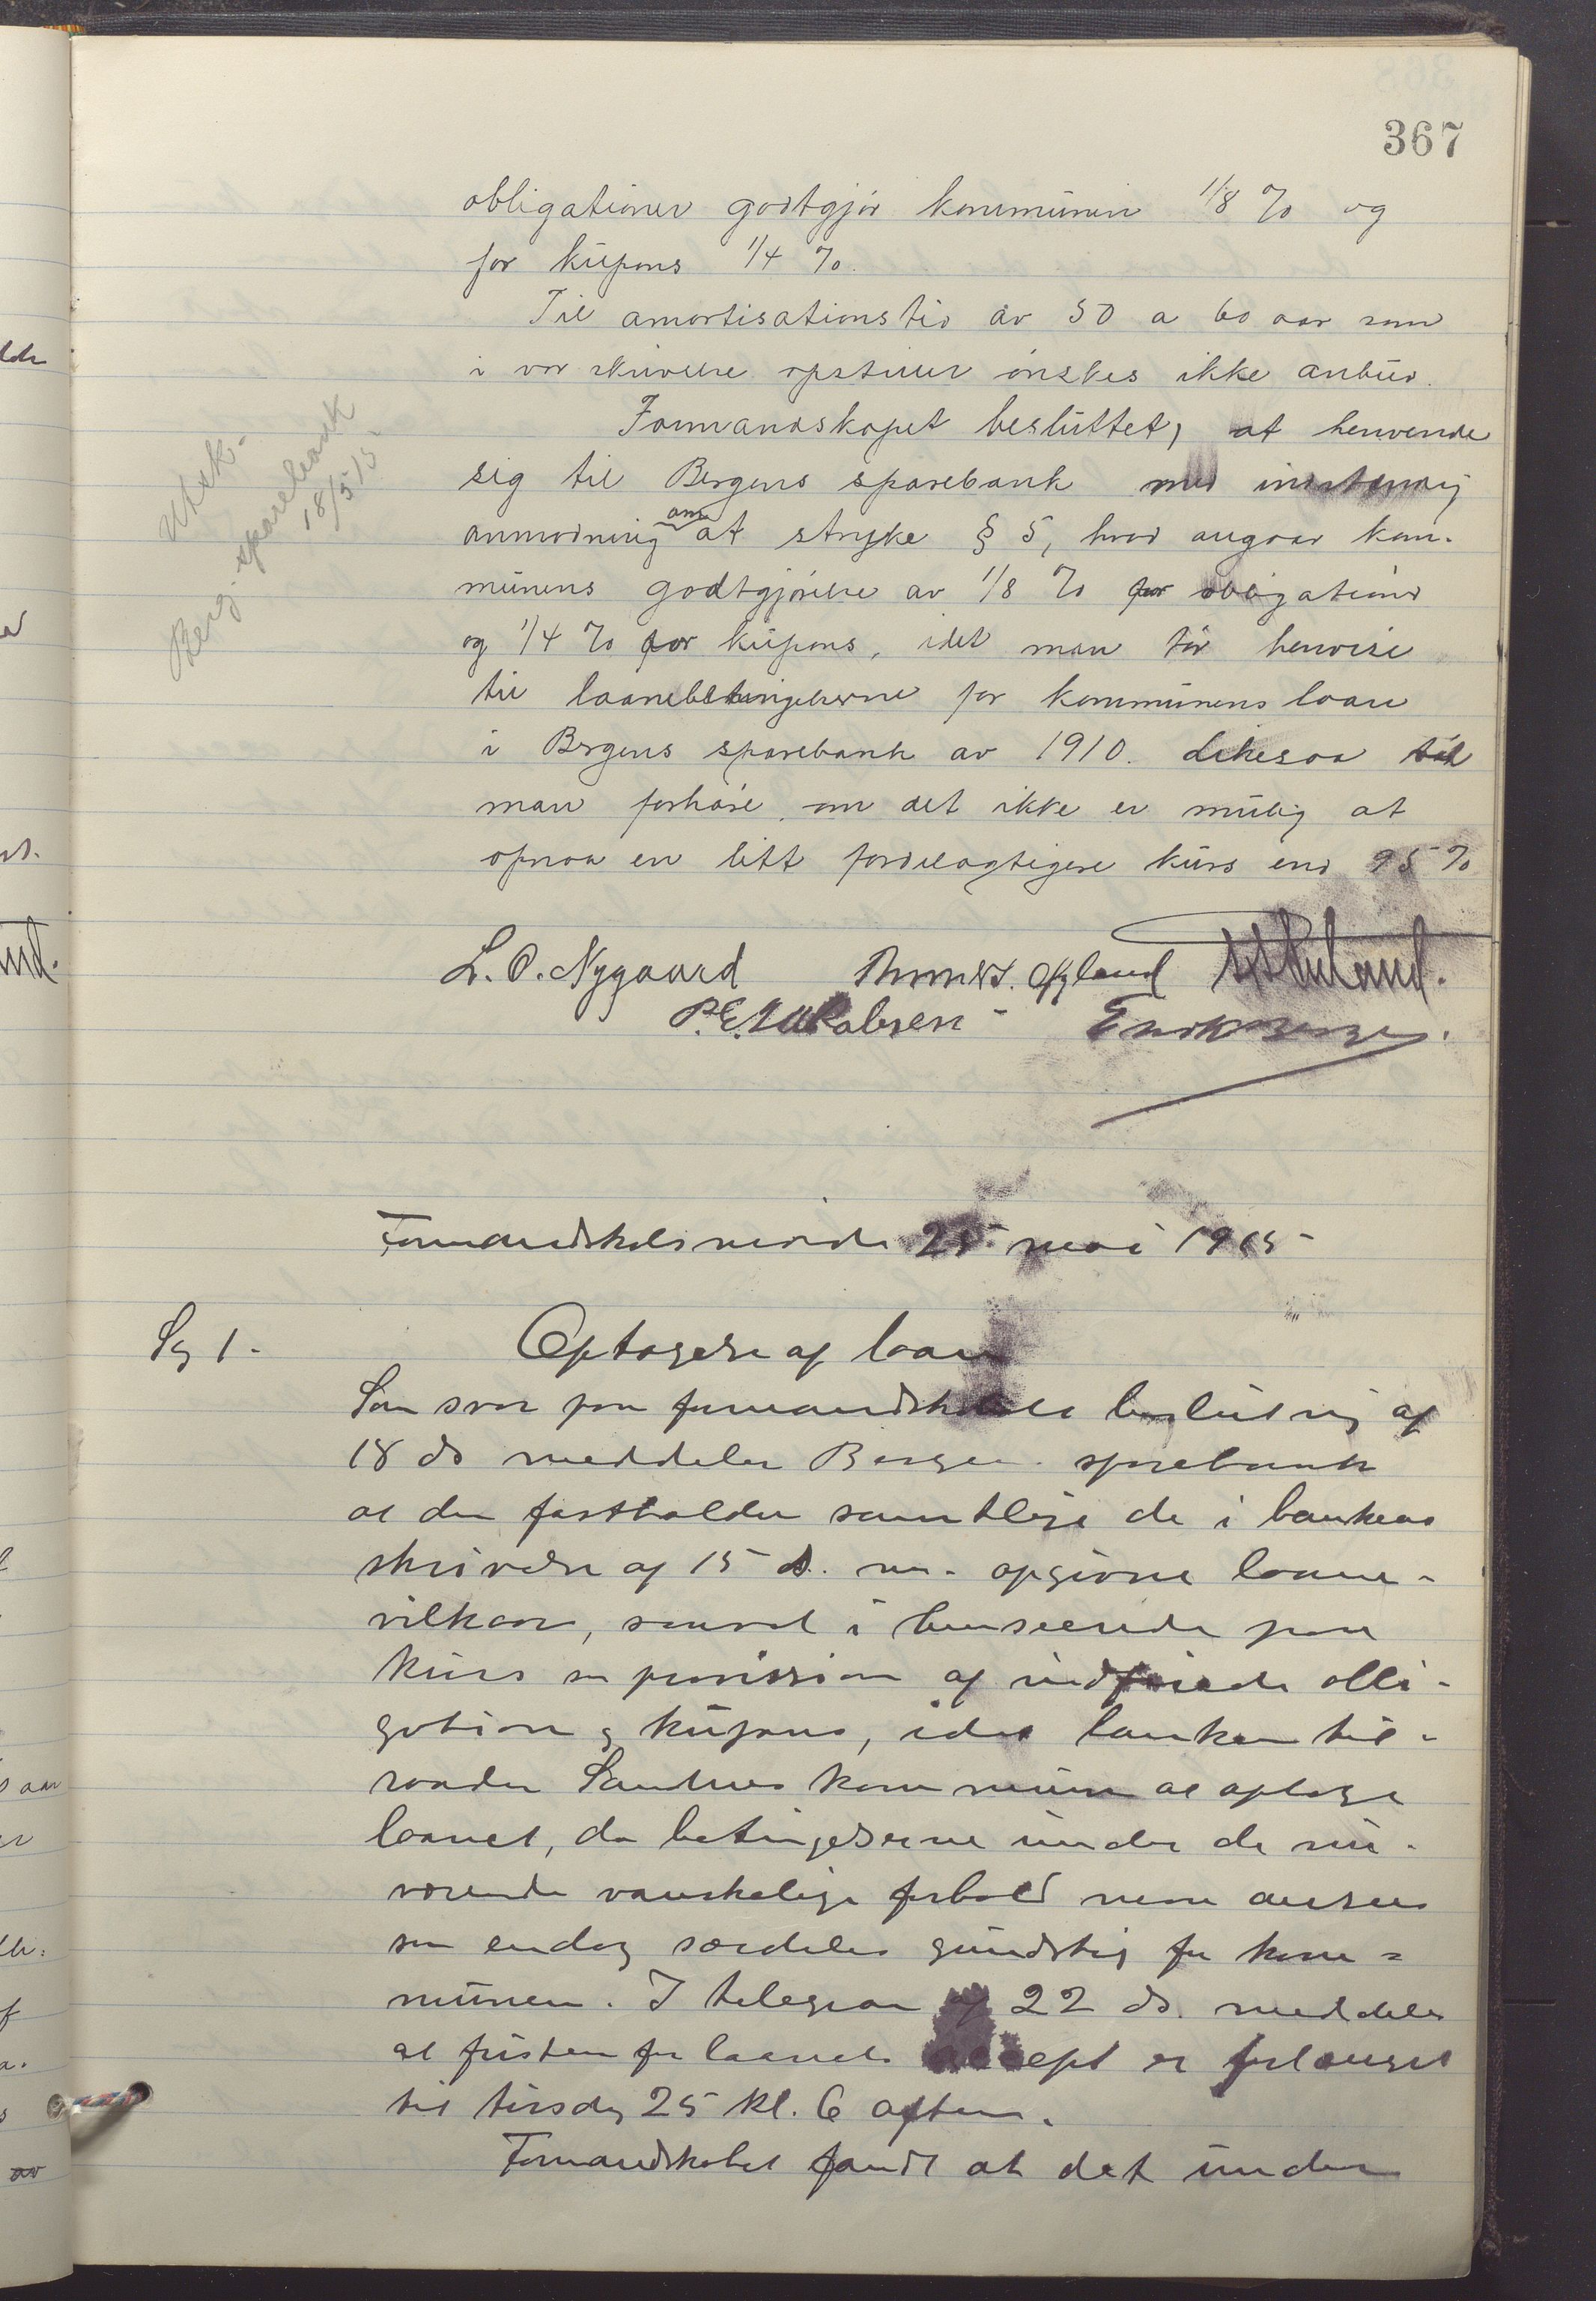 367
obligationer godtgjør kommunen 1/8 % og
for kupons 1/4 %.
Til amortisationstid av 50 a 60 aar som
i vor skrivelse opstillet ønskes ikke anbud.
Formandskapet besluttet, at henvende
sig til Bergens sparebank med indstændig
anmodning om at stryke § 5, hvad angaar kom-
munens godtgjørelse av 1/8 % for obligationer
og 1/4 % for kupons, idet man tør henvise
til laanebetingelserne for kommunens laan
i Bergens sparebank av 1910. Likesaa vil
man forhøre, om det ikke er mulig at
opnaa en litt fordelagtigere kurs end 95 %
Utsk.
Berg. sparebank
18/5 15
L. O. Nygaard
P. E. Jakobsen
Formandskabsmøde 25 mai 1915
Sg 1.
Optagelse af laan
Som svar paa formandskabets beslutning af
18 ds meddeler Bergens sparebank
at den fastholder samtlige de i bankens
skrivelse af 15 d. m. opgivne laane-
vilkaar, saavel i henseende paa
kurs som provision af indfriede obli-
gation og kupons, idet banken til-
raader Sandnes kommune at optage
laanet, da betingelserne under de nu-
værende vanskelige forhold maa ansees
som endog særdeles gunstig for kom-
munen. I telegram af 22 ds. meddeles
at fristen for laanets accept er forlænget
til tirsdag 25 kl. 6 aften.
Formandskabet fandt at det under